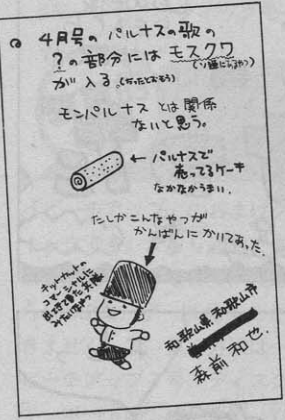 4月号の パルナスの歌の
?の部分には モスクワ
が入る。(だったとおもう)
モンパルナスとは関係
ないと思う。
← パルナスで
売ってるケーキ
なかなかうまい。
たしかこんなやつが
かんばんにかいてあった。
キットカットの
コマーシャルに
出てきた
みたいなやつ
和歌山県 和歌山市
森前和也.